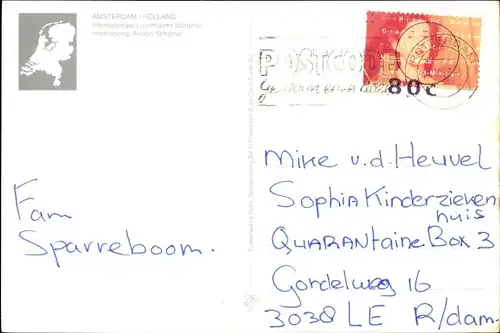 AMSTERDAM / HOLLAND
Internationale Luchthaven Schiphol
International Airport Schiphol
POSTCODE
ROTTERDAM
80c
Fam
Sparreboom.
Mike v.d. Heuvel
Sophia Kinderzieken
huis
QUARANtaine Box 3
Gordelweg 16
3038 LE R/dam.